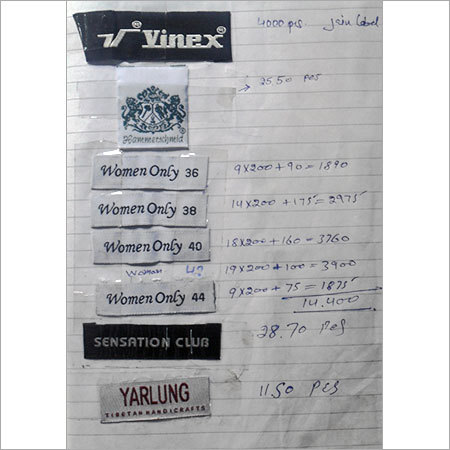 Vinex® 4000 pcs. join Label
Hammerschmid® → 25.50 pcs
Women Only 36 9x200+90=1890
Women Only 38 14x200+175=2975
Women Only 40 18x200+160=3760
Women 42 19x200+100=3900
Women Only 44 9x200+75=1875
14.400
SENSATION CLUB 28.70 pcs
YARLUNG 11.50 pcs
TIBETAN HANDICRAFTS